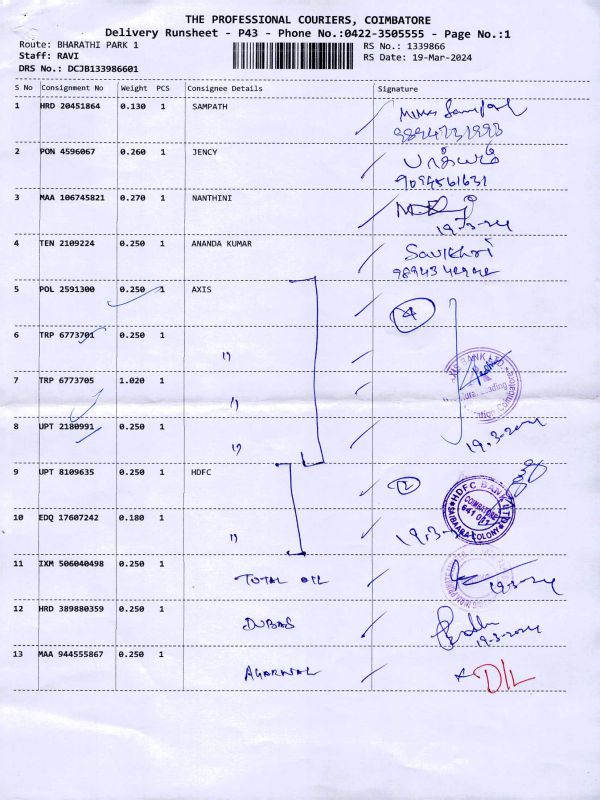 THE PROFESSIONAL COURIERS, COIMBATORE
Delivery Runsheet - P43 - Phone No.:0422-3505555 - Page No.:1
Route: BHARATHI PARK 1 RS No.: 1339866
Staff: RAVI RS Date: 19-Mar-2024
DRS No.: DCJB133986601
S No Consignment No Weight PCS Consignee Details Signature
1 HRD 20451864 0.130 1 SAMPATH
2 PON 4596067 0.260 1 JENCY
9094561631
3 MAA 106745821 0.270 1 NANTHINI
19-3-24
4 TEN 2109224 0.250 1 ANANDA KUMAR
5 POL 2591300 0.250 1 AXIS
4
6 TRP 6773701 0.250 1 ''
7 TRP 6773705 1.020 1 ''
AXIS BANK LTD
8 UPT 2180991 0.250 1 ''
19.3-2024
9 UPT 8109635 0.250 1 HDFC 2
HDFC BANK LTD
COIMBATORE
641 011
SAIBABA COLONY
10 EDQ 17607242 0.180 1 ''
11 IXM 506040498 0.250 1 TOTAL OIL
19-3-24
12 HRD 389880359 0.250 1 DUBAS
19-3-2024
13 MAA 944555867 0.250 1 AGARWAL
D/L